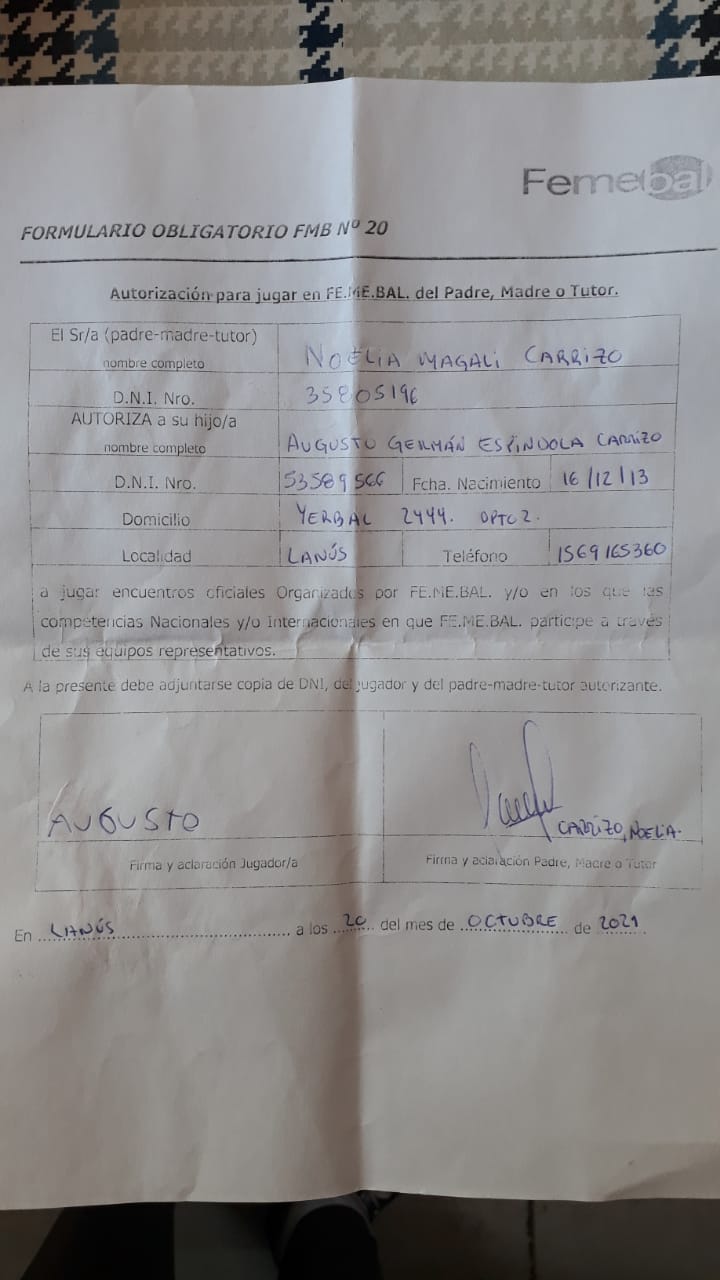 Femebal
FORMULARIO OBLIGATORIO FMB Nº 20
Autorización para jugar en FE.ME.BAL. del Padre, Madre o Tutor.
El Sr/a (padre-madre-tutor)
nombre completo
NOELIA MAGALI CARRIZO
D.N.I. Nro.
35805196
AUTORIZA a su hijo/a
nombre completo
AUGUSTO GERMÁN ESPINDOLA CARRIZO
D.N.I. Nro.
53589566
Fcha. Nacimiento
16/12/13
Domicilio
YERBAL 2444. DPTO 2.
Localidad
LANÚS
Teléfono
1569165360
a jugar encuentros oficiales Organizados por FE.ME.BAL. y/o en los que las
competencias Nacionales y/o Internacionales en que FE.ME.BAL. participe a través
de sus equipos representativos.
A la presente debe adjuntarse copia de DNI, del jugador y del padre-madre-tutor autorizante.
AUGUSTO
CARRIZO, NOELIA.
Firma y aclaración Jugador/a
Firma y aclaración Padre, Madre o Tutor
En LANÚS a los 20 del mes de OCTUBRE de 2021